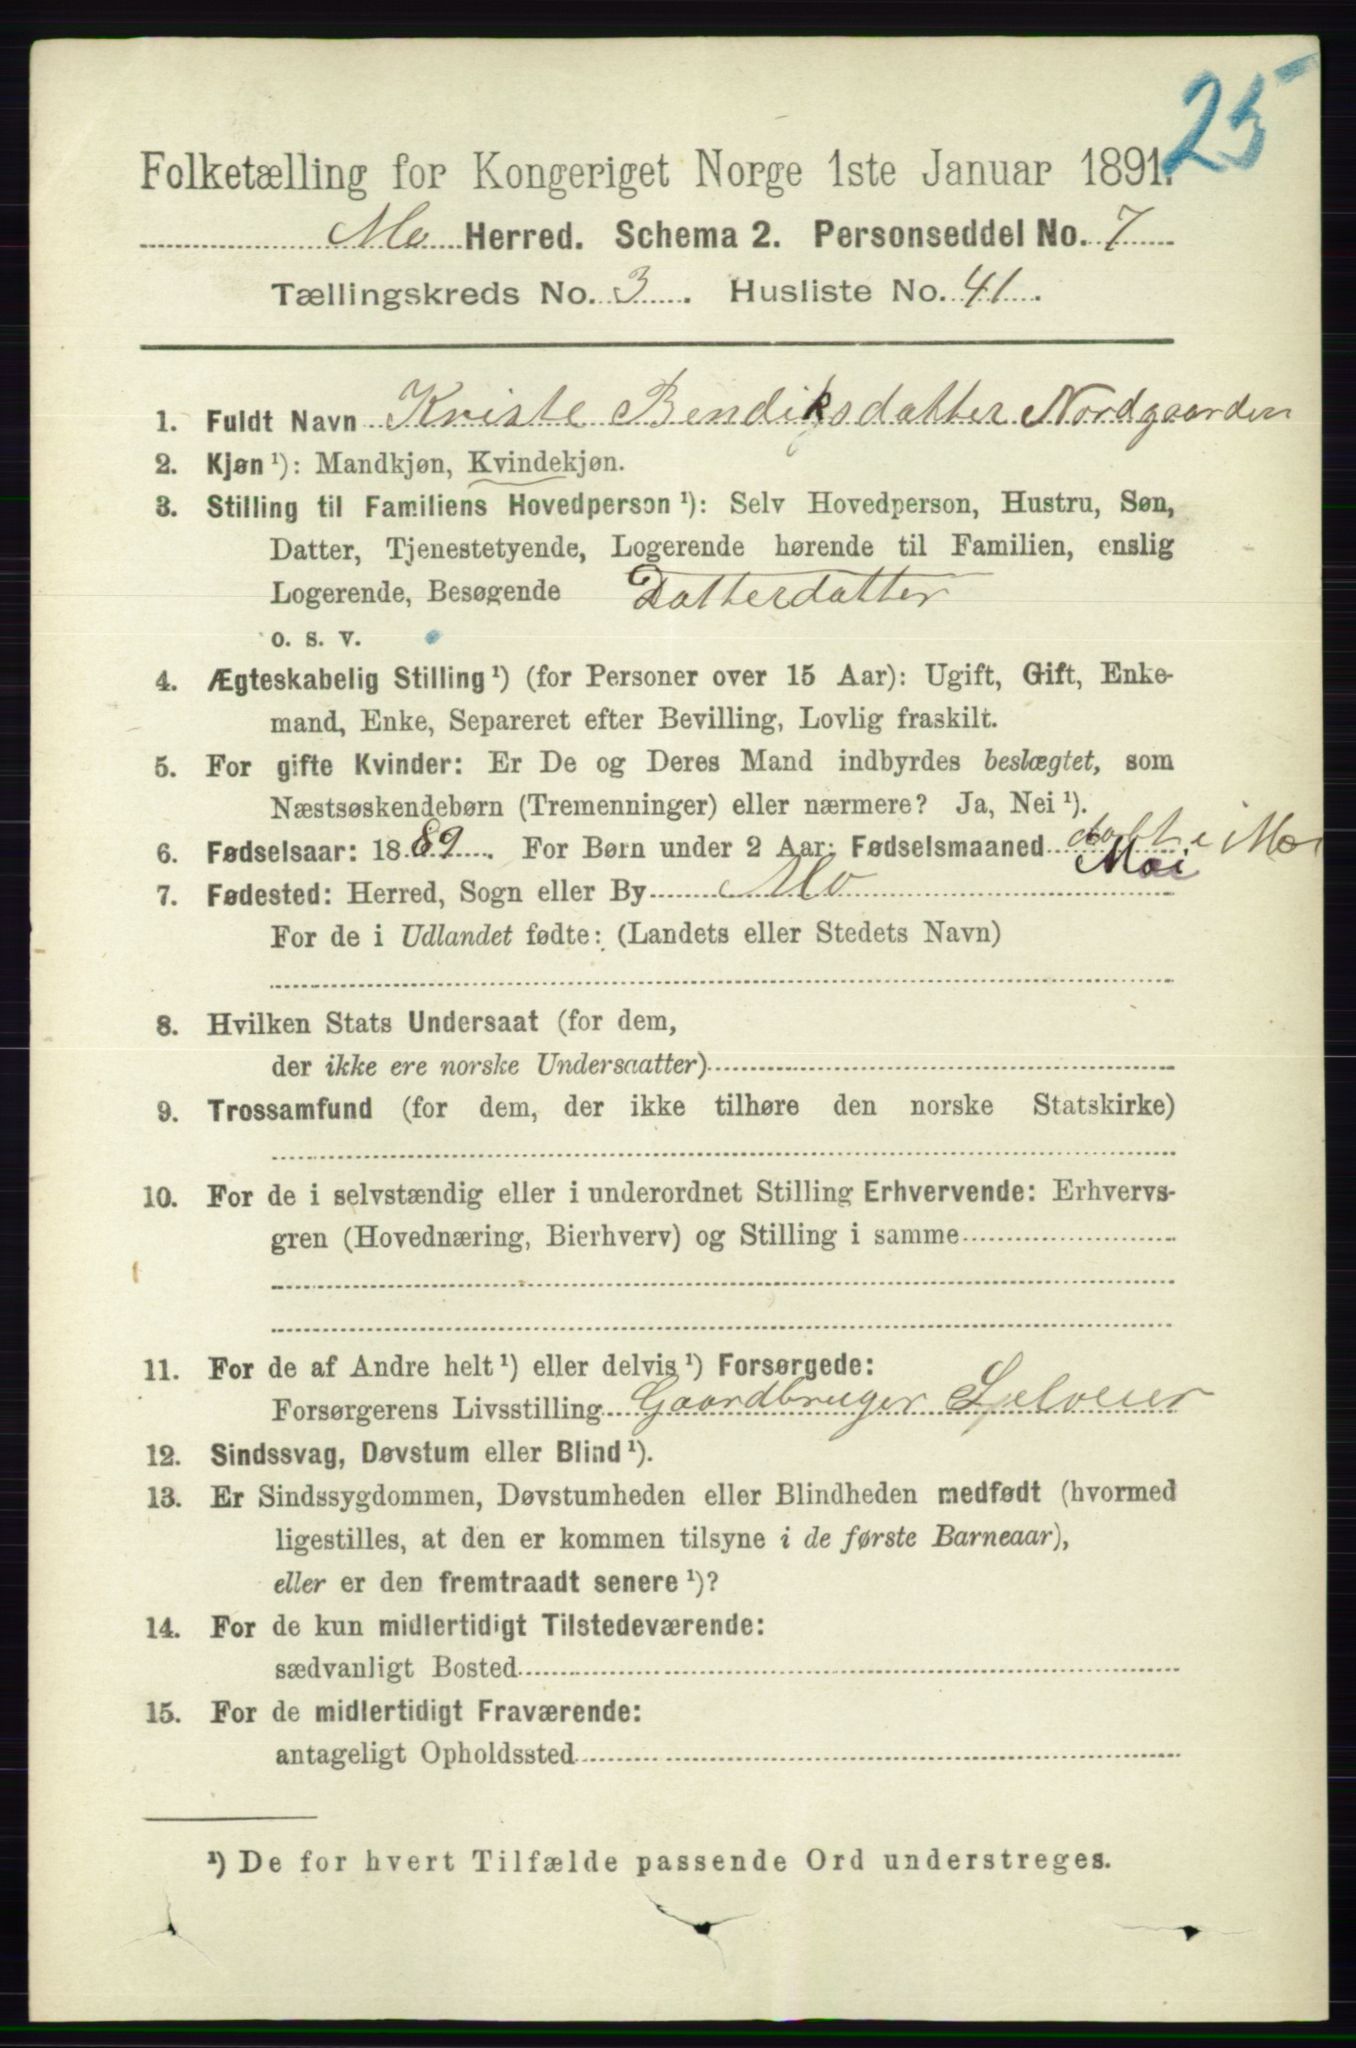 25
Folketælling for Kongeriget Norge 1ste Januar 1891.
Mo Herred. Schema 2. Personseddel No. 7
Tællingskreds No. 3. Husliste No. 41.
1. Fuldt Navn Kriste Bendiksdatter Nordgaarden
2. Kjøn ¹): Mandkjøn, Kvindekjøn.
3. Stilling til Familiens Hovedperson ¹): Selv Hovedperson, Hustru, Søn,
Datter, Tjenestetyende, Logerende hørende til Familien, enslig
Logerende, Besøgende Datterdatter
o. s. v.
4. Ægteskabelig Stilling ¹) (for Personer over 15 Aar): Ugift, Gift, Enke-
mand, Enke, Separeret efter Bevilling, Lovlig fraskilt.
5. For gifte Kvinder: Er De og Deres Mand indbyrdes beslægtet, som
Næstsøskendebørn (Tremenninger) eller nærmere? Ja, Nei ¹).
6. Fødselsaar: 1889. For Børn under 2 Aar: Fødselsmaaned døbt i Mo
Mai
7. Fødested: Herred, Sogn eller By Mo
For de i Udlandet fødte: (Landets eller Stedets Navn)
8. Hvilken Stats Undersaat (for dem,
der ikke ere norske Undersaatter)
9. Trossamfund (for dem, der ikke tilhøre den norske Statskirke)
10. For de i selvstændig eller i underordnet Stilling Erhvervende: Erhvervs-
gren (Hovednæring, Bierhverv) og Stilling i samme
11. For de af Andre helt ¹) eller delvis ¹) Forsørgede:
Forsørgerens Livsstilling Gaardbruger Selveier
12. Sindssvag, Døvstum eller Blind ¹).
13. Er Sindssygdommen, Døvstumheden eller Blindheden medfødt (hvormed
ligestilles, at den er kommen tilsyne i de første Barneaar),
eller er den fremtraadt senere ¹)?
14. For de kun midlertidigt Tilstedeværende:
sædvanligt Bosted
15. For de midlertidigt Fraværende:
antageligt Opholdssted
¹) De for hvert Tilfælde passende Ord understreges.